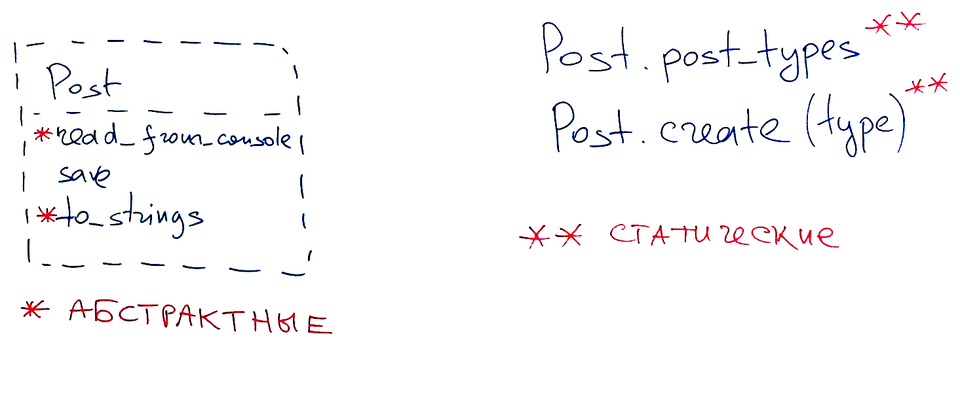 Post
*read_from_console
save
*to_strings
* АБСТРАКТНЫЕ
Post.post_types**
Post.create(type)**
** СТАТИЧЕСКИЕ